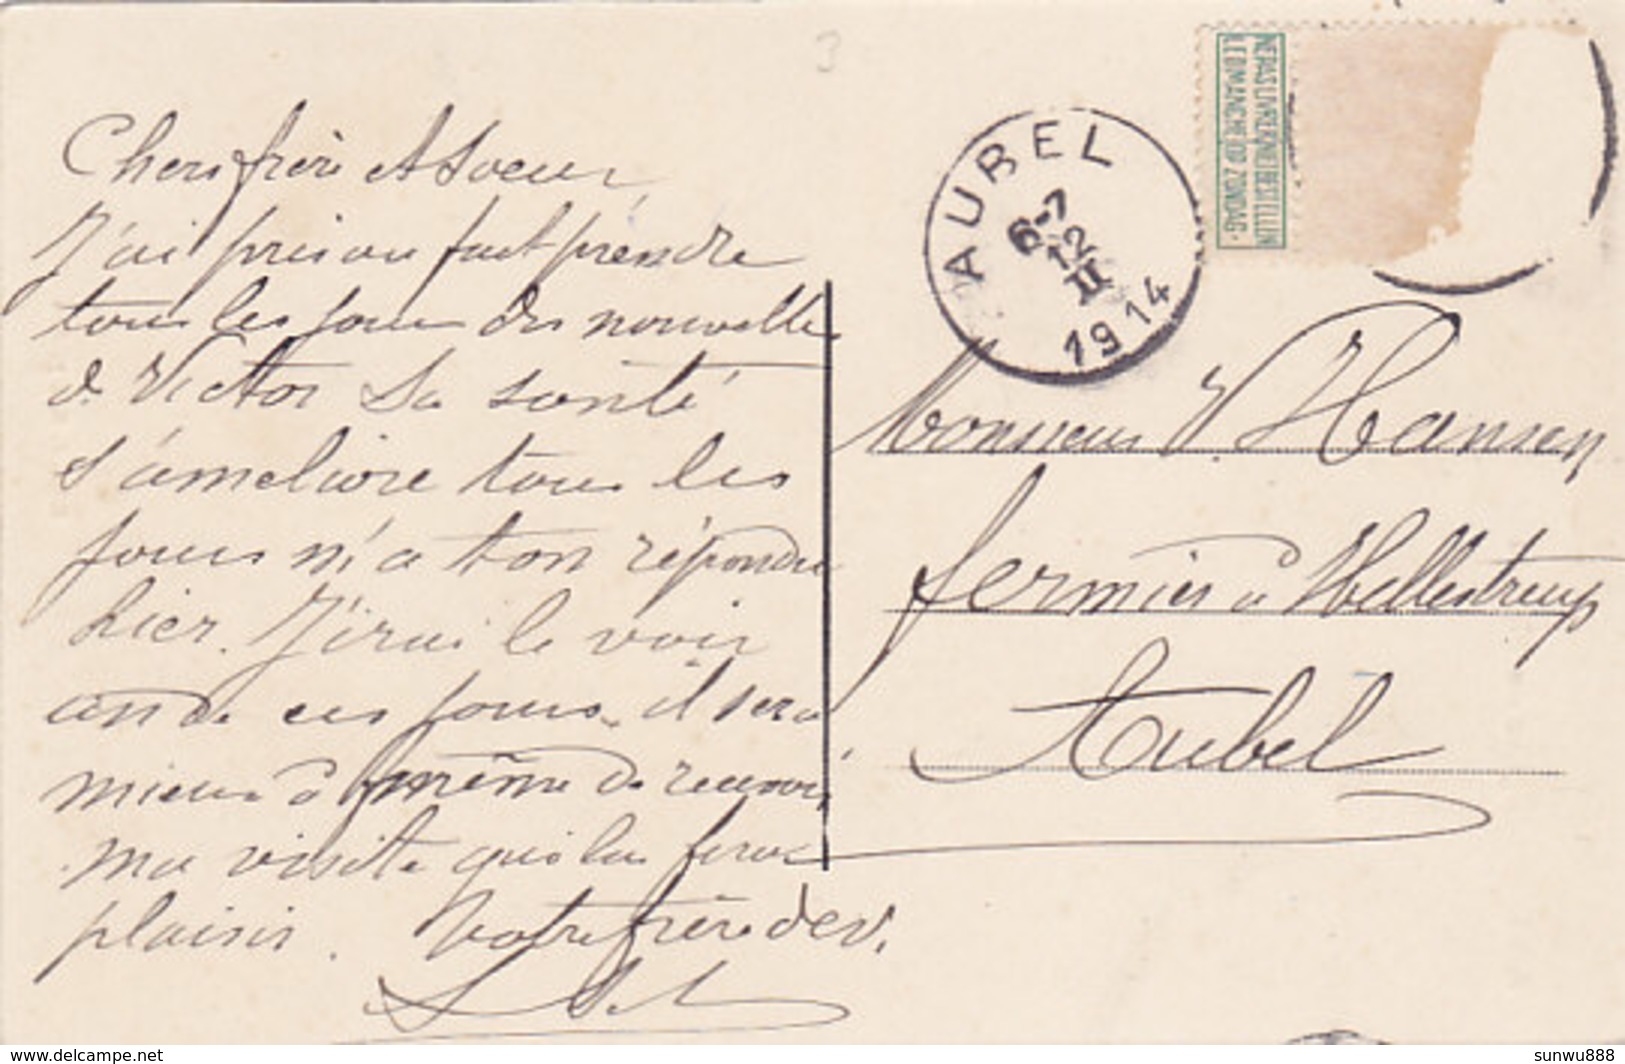 Chers frère et Soeur,
J'ai pris au fait prendre
tous les jours des nouvelle
de Victor Sa santé
s'améliore tous les
jours m'a ton répondu
hier. J'irai le voir
un de ces jours, il sera
mieux à même de recevoir
ma visite qui lui fera
plaisir. Votre frère dev.
AUBEL
6-7
12
II
1914
NE PAS LIVRER
LE DIMANCHE
NIET BESTELLEN
OP ZONDAG.
Monsieur V. Hansen
fermier à Hellestreup
Aubel
3
http://www.delcampe.net
sunwu888